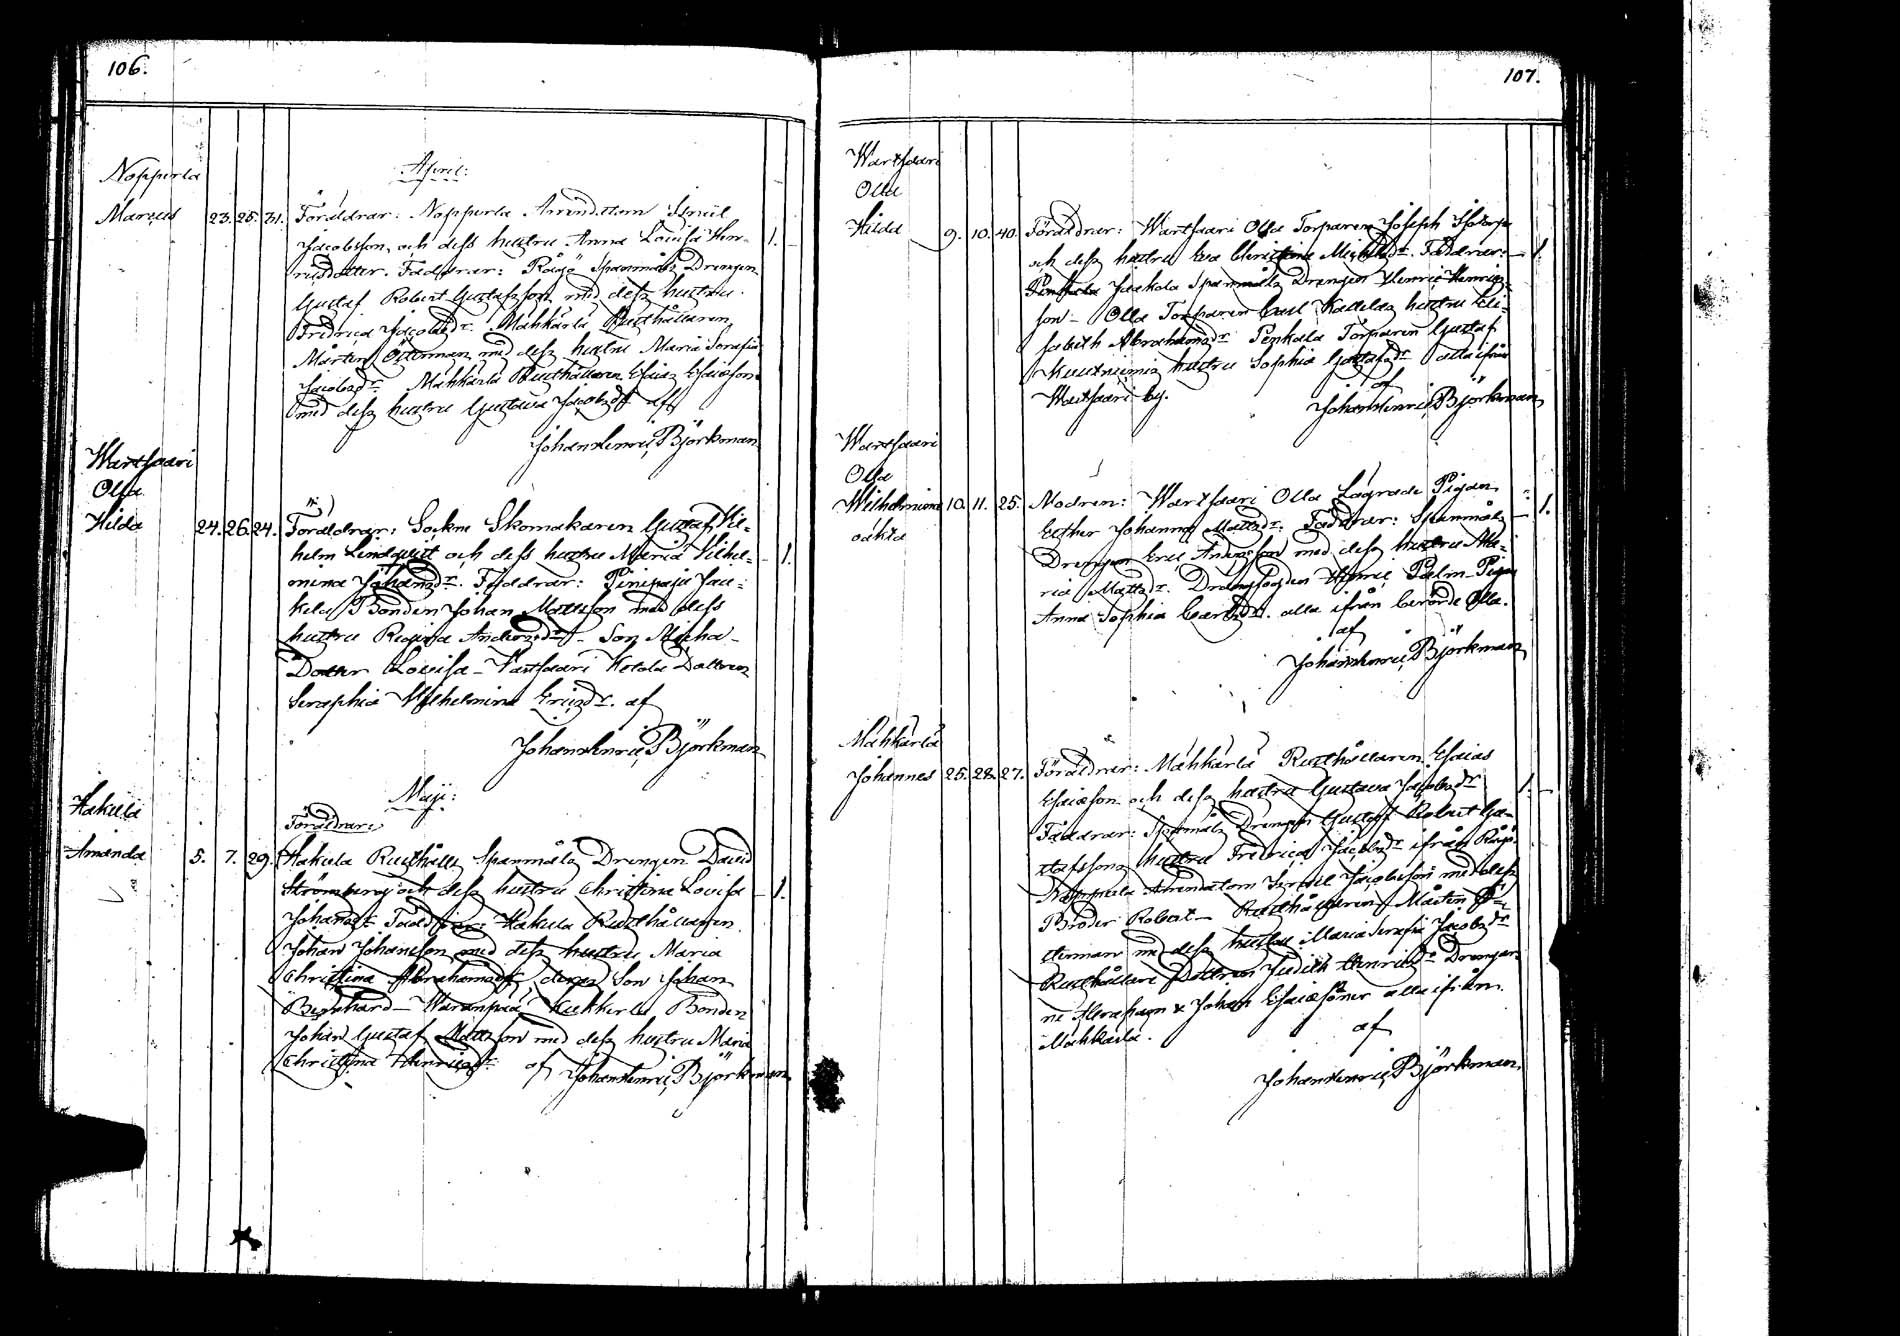 106.
April:
Nopperla
Marcus 23. 25. 31. Föräldrar: Nopperla Arrendatorn Israel
Jacobsson och dess hustru Anna Lovisa Hen-
ricsdotter. Faddrar: Röjsö Spanmåls Drengen
Gustaf Robert Gustafsson med dess hustru
Fredrica Jacobsdr. Mahkärlä Rusthållaren
Mårten Österman med dess hustru Maria Serafia
Jacobsdr Mahkärlä Rusthållaren Esaias Esaiæson
med dess hustru Gustava Jacobsdr af
Johan Henric Björkman
Wartsaari
Olla
Hilda 24. 26. 24. Föräldrar: Sockne Skomakaren Gustaf Vil-
helm Lindqvist och dess hustru Maria Vilhel-
mina Johansdr. Faddrar: Jau-
kela Bonden Johan Mattsson med dess
hustru Regina Andersdr - Son Micha-
Dotter Lovisa - Vartsaari Ketola Dottren
Seraphia Wilhelmina Ericsdr. af
Johan Henric Björkman
Maji:
Hakula
Föräldrar:
Amanda 5. 7. 29. Hakula Rusthålls Spanmåls Drengen David
Strömberg och dess hustru Christina Lovisa
Johansdr Faddrar: Hakula Rusthållaren
Johan Johansson med dess hustru Maria
Christina Abrahamsdr, deras Son Johan
Bernhard - Waranpää Bonden
Johan Gustaf Mattsson med dess hustru Maria
Christina Henricsdr. af Johan Henric Björkman
107.
Wartsaari
Olla
Hilda 9. 10. 40. Föräldrar: Wartsaari Olla Torparen Joseph
och dess hustru Eva Christina Michelsdr. Faddrar:
Penkala Jaakola Spanmåls Drengen Henric Henrics-
son - Olla Torparen Carl Kallelas hustru Eli-
sabeth Abrahamsdr Penkala Torparen Gustaf
hustru Sophia Gustafsdr alla ifrån
Wartsaari by. af
Johan Henric Björkman
Wartsaari
Olla
Wilhelmina 10. 11. 25. Modren: Wartsaari Olla Lägrade Pigan
oäkta Esther Johanna Mattsdr. Faddrar: Spanmåls
Drengen Eric Andersson med dess hustru Ma-
ria Mattsdr. Drengfogden Henric Palm - Pigan
Anna Sophia Carlsdr. alla ifrån berörde Olla.
af
Johan Henric Björkman
Mahkärlä
Johannes 25. 28. 27. Föräldrar: Mahkärlä Rusthållaren Esaias
Esaiæson och dess hustru Gustava Jacobsdr
Faddrar: Spanmåls Drengen Gustaf Robert Gu-
stafssons hustru Fredrica Jacobsdr ifrån Röjsö.
Nopperla Arrendatorn Israel Jacobsson med dess
Broder Robert - Rusthållaren Mårten Ö-
sterman med dess hustru Maria Serafia Jacobsdr
Rusthållare Dottren Judith Henricsdr Drengar-
ne & Johan Esaiæsöner alla ifrån
Mahkärlä.
af
Johan Henric Björkman